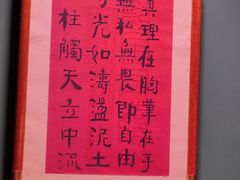 真理在胸筆在手
無私無畏即自由
光如濤盪泥土
柱觸天立中流